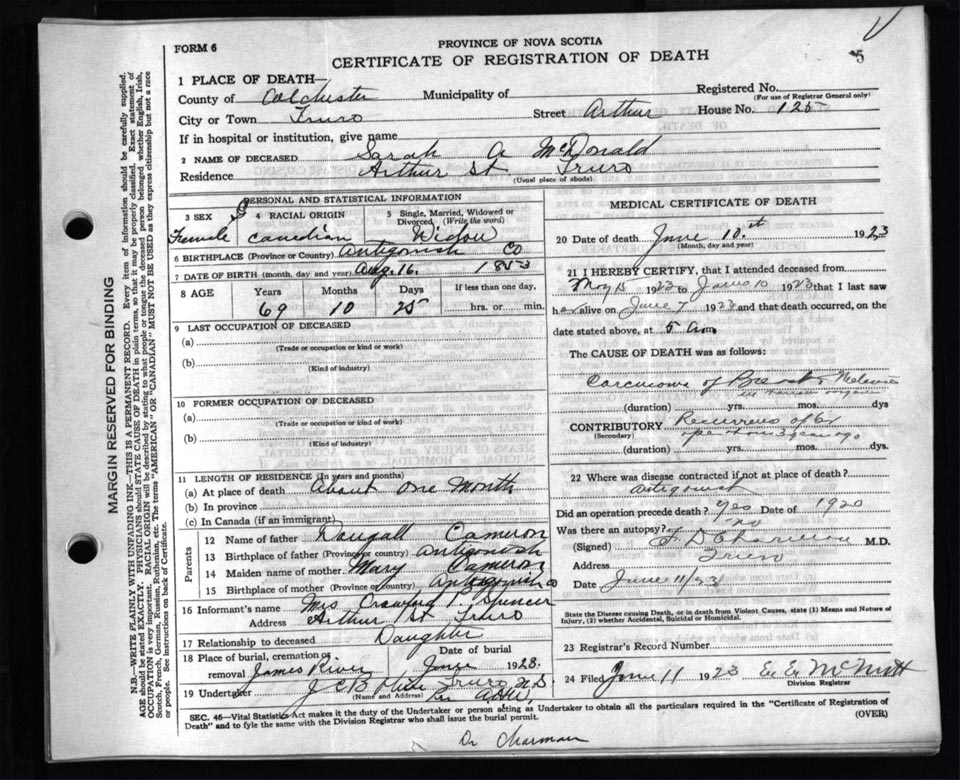 5
FORM 6
PROVINCE OF NOVA SCOTIA
CERTIFICATE OF REGISTRATION OF DEATH
1 PLACE OF DEATH—
County of Colchester Municipality of
Registered No.
(For use of Registrar General only)
City or Town Truro Street Arthur House No. 125
If in hospital or institution, give name
2 NAME OF DECEASED Sarah A McDonald
Residence Arthur St Truro
(Usual place of abode)
PERSONAL AND STATISTICAL INFORMATION
3 SEX
Female
4 RACIAL ORIGIN
Canadian
5 Single, Married, Widowed or Divorced (Write the word)
Widow
6 BIRTHPLACE (Province or Country) Antigonish Co
7 DATE OF BIRTH (month, day and year) Aug. 16. 1853
8 AGE
Years Months Days If less than one day,
69 10 25 hrs. or min.
9 LAST OCCUPATION OF DECEASED
(a)
(Trade or occupation or kind or work)
(b)
(Kind of industry)
10 FORMER OCCUPATION OF DECEASED
(a)
(Trade or occupation or kind of work)
(b)
(Kind of industry)
11 LENGTH OF RESIDENCE (In years and months)
(a) At place of death About one Month
(b) In province
(c) In Canada (if an immigrant)
Parents
12 Name of father Dougall Cameron
13 Birthplace of father (Province or country) Antigonish
14 Maiden name of mother Mary Cameron
15 Birthplace of mother (Province or country) Antigonish Co
16 Informant's name Mrs Crawford P. Spencer
Address Arthur St Truro
17 Relationship to deceased Daughter
18 Place of burial, cremation or removal James River
Date of burial
June 1923.
19 Undertaker J C B Truro N.S.
(Name and Address)
MEDICAL CERTIFICATE OF DEATH
20 Date of death June 10th 1923
(Month, day and year)
21 I HEREBY CERTIFY, that I attended deceased from
May 15 1923 to June 10 1923 that I last saw
her alive on June 7 1923 and that death occurred, on the
date stated above, at 5 am
The CAUSE OF DEATH was as follows:
Carcinoma of Breast &
(duration) yrs. mos. dys
CONTRIBUTORY
(Secondary)
3 years ago
(duration) yrs. mos. dys.
22 Where was disease contracted if not at place of death?
Antigonish
Did an operation precede death? Yes Date of 1920
Was there an autopsy? no
(Signed) M.D.
Address Truro
Date June 11/23
State the Disease causing Death, or in death from Violent Causes, state (1) Means and Nature of
Injury, (2) whether Accidental, Suicidal or Homicidal.
23 Registrar's Record Number
24 Filed June 11 1923 E. E. McNutt
Division Registrar
SEC. 46—Vital Statistics Act makes it the duty of the Undertaker or person acting as Undertaker to obtain all the particulars required in the "Certificate of Registration of
Death" and to fyle the same with the Division Registrar who shall issue the burial permit.
(OVER)
Dr Charman
MARGIN RESERVED FOR BINDING
N.B.—WRITE PLAINLY WITH UNFADING INK—THIS IS A PERMANENT RECORD. Every item of information should be carefully supplied.
AGE should be stated EXACTLY. PHYSICIANS should STATE CAUSE OF DEATH in plain terms, so that it may be properly classified. Exact statement of
OCCUPATION is very important. RACIAL ORIGIN will be described by stating to what people or tongue the deceased person belonged whether English, Irish,
Scotch, French, German, Russian, Ruthenian, etc. The terms "AMERICAN" or "CANADIAN" MUST NOT BE USED as they express citizenship but not a race
or people. See instructions on back of Certificate.